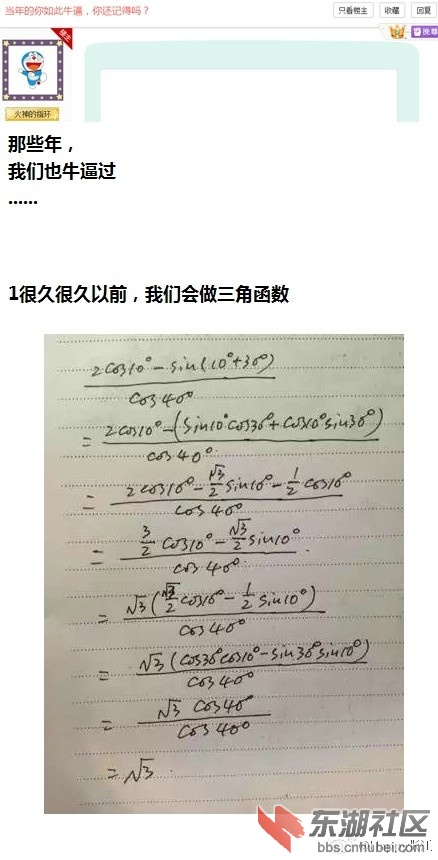 当年的你如此牛逼，你还记得吗？
只看楼主
收藏
回复
楼主
火神的指环
那些年，
我们也牛逼过
......
1很久很久以前，我们会做三角函数
2cos10° - sin(10°+30°)
cos40°
= 2cos10° - (sin10°cos30° + cos10°sin30°)
cos40°
= 2cos10° - √3/2 sin10° - 1/2 cos10°
cos40°
= 3/2 cos10° - √3/2 sin10°
cos40°
= √3(√3/2 cos10° - 1/2 sin10°)
cos40°
= √3(cos30°cos10° - sin30°sin10°)
cos40°
= √3 cos40°
cos40°
= √3
东湖社区
bbs.cnhubei.com